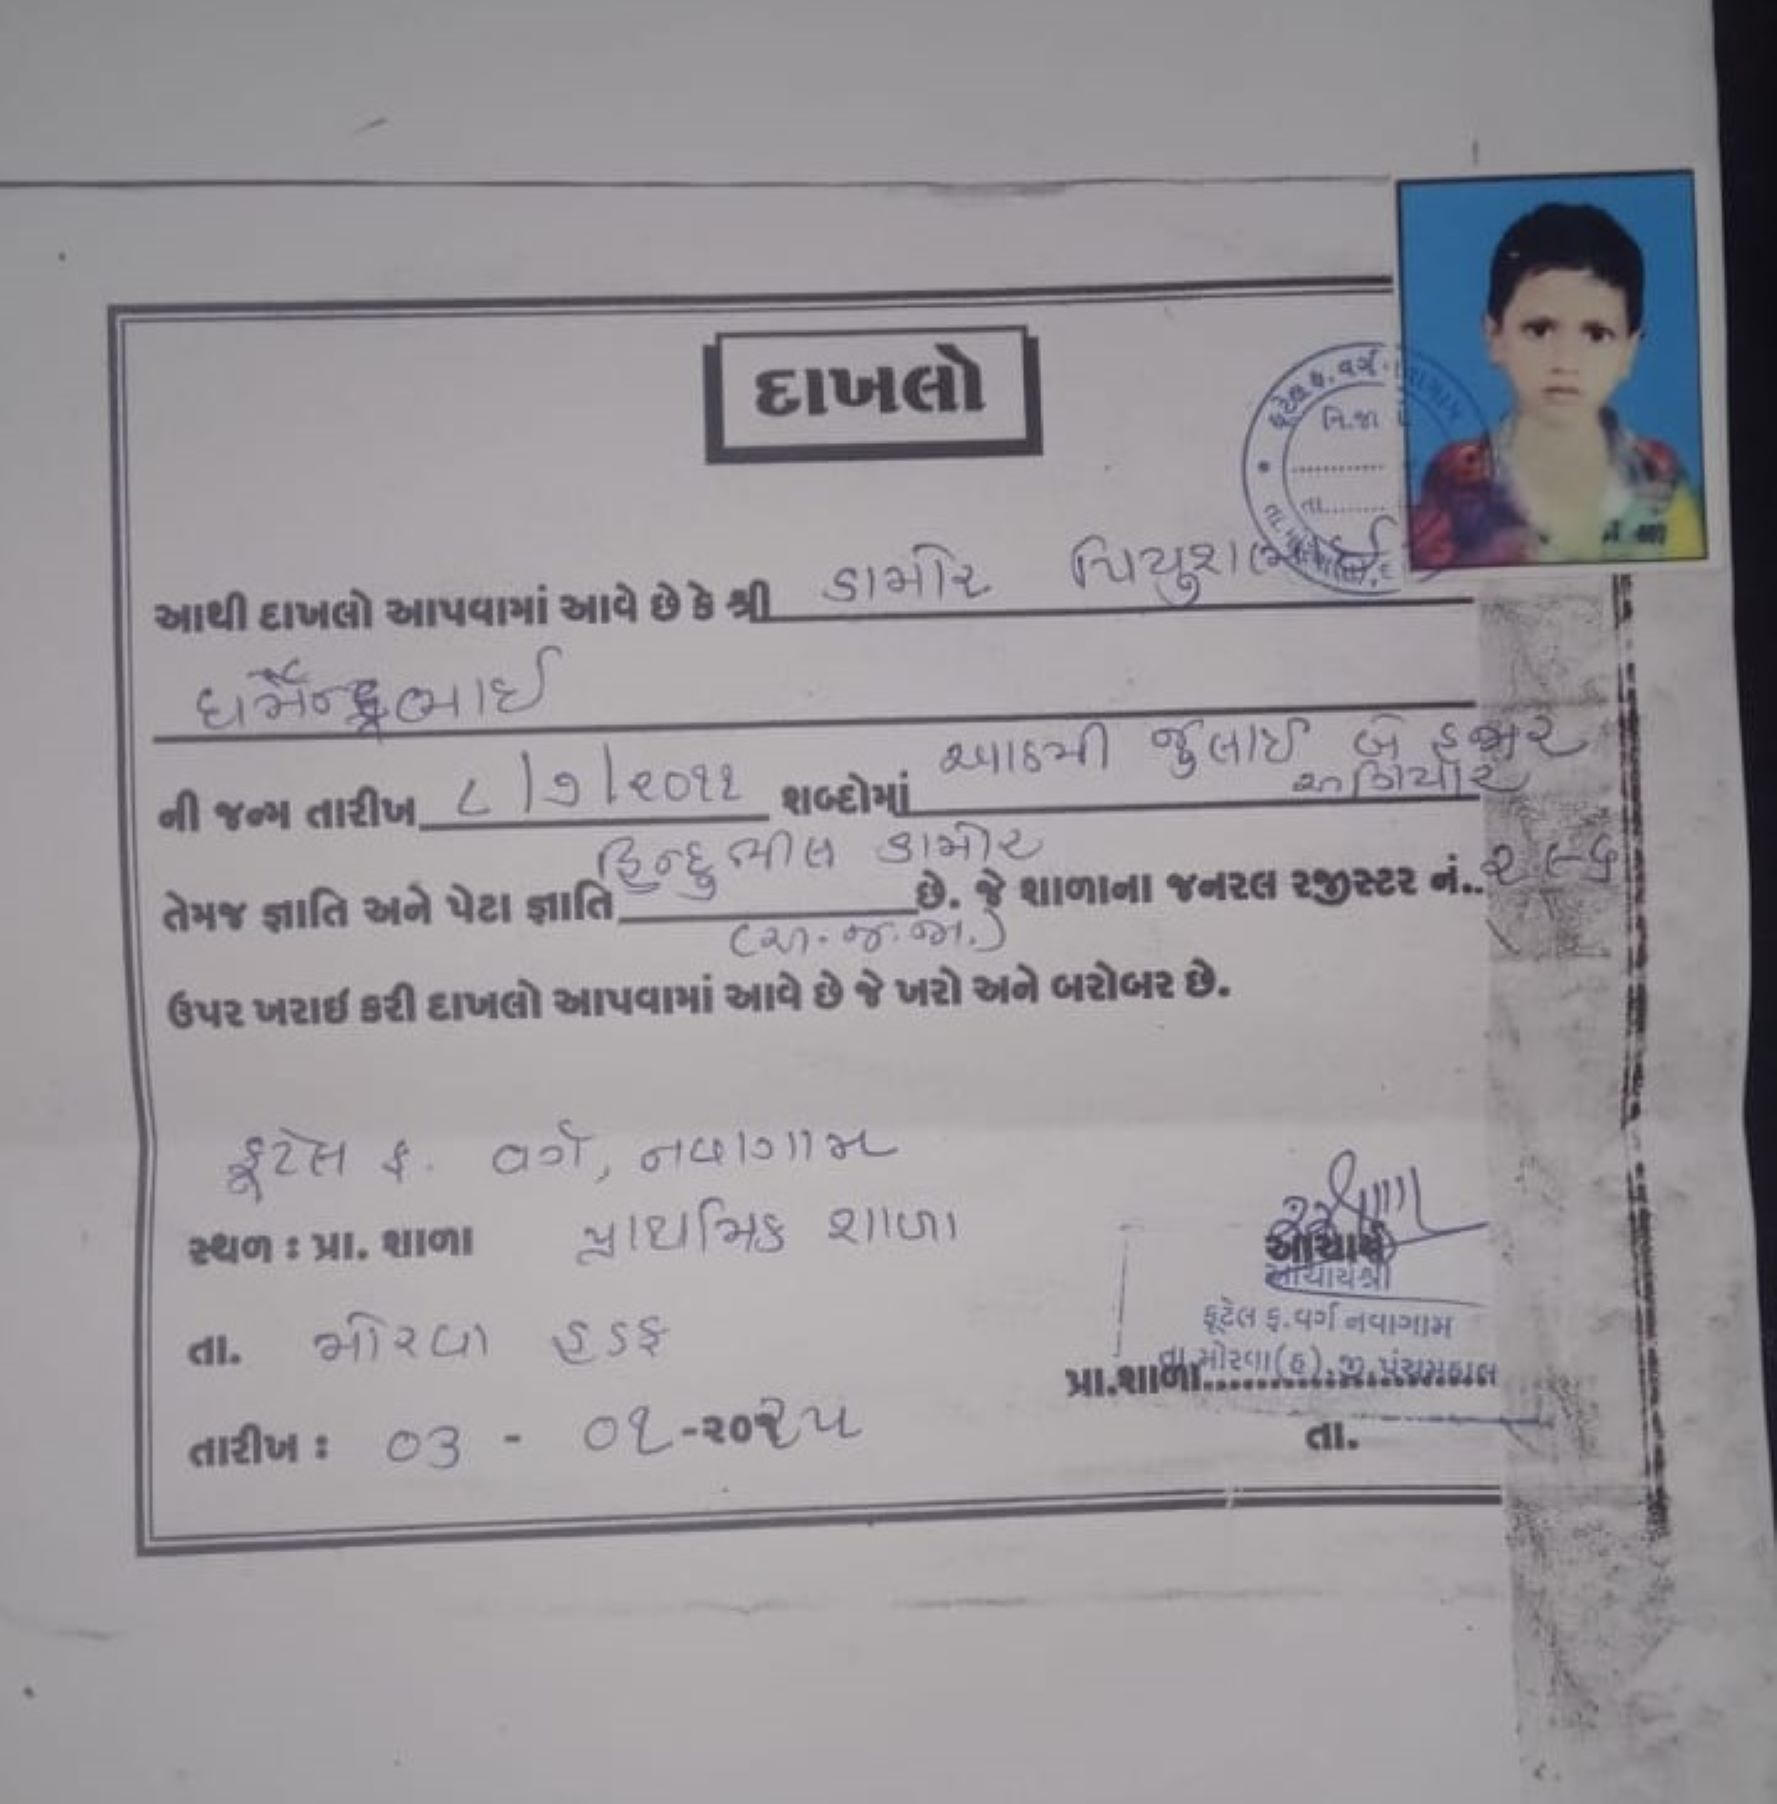 દાખલો
ફૂટેલ ફ. વર્ગ
નિ.જા
તા........
આથી દાખલો આપવામાં આવે છે કે શ્રી ડામોર પિયુશભાઈ
ધર્મેન્દ્રભાઈ
ની જન્મ તારીખ ૮/૭/૨૦૧૧ શબ્દોમાં આઠમી જુલાઈ બે હજાર
અગિયાર
તેમજ જ્ઞાતિ અને પેટા જ્ઞાતિ હિન્દુ ભીલ ડામોર છે. જે શાળાના જનરલ રજીસ્ટર નં.. ૨૯૬
(અ.જ.જા.)
ઉપર ખરાઈ કરી દાખલો આપવામાં આવે છે જે ખરો અને બરોબર છે.
ફૂટેલ ફ. વર્ગ, નવાગામ
સ્થળ : પ્રા. શાળા પ્રાથમિક શાળા
આચાર્ય
આચાર્યશ્રી
ફૂટેલ ફ.વર્ગ નવાગામ
તા. મોરવા હડફ
તા.મોરવા(હ).જી.પંચમહાલ
પ્રા.શાળા........................
તારીખ : ૦૩ - ૦૧-૨૦૨૫
તા.